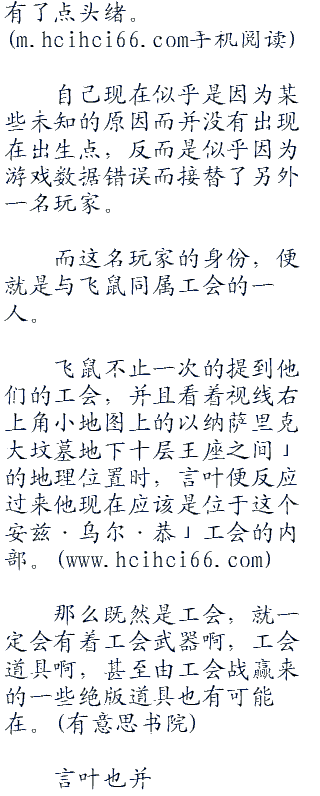 有了点头绪。
(m.hcihci66.com手机阅读)
自己现在似乎是因为某
些未知的原因而并没有出现
在出生点，反而是似乎因为
游戏数据错误而接替了另外
一名玩家。
而这名玩家的身份，便
就是与飞鼠同属工会的一
人。
飞鼠不止一次的提到他
们的工会，并且看着视线右
上角小地图上的以纳萨里克
大坟墓地下十层王座之间」
的地理位置时，言叶便反应
过来他现在应该是位于这个
安兹·乌尔·恭」工会的内
部。(www.hcihci66.com)
那么既然是工会，就一
定会有着工会武器啊，工会
道具啊，甚至由工会战赢来
的一些绝版道具也有可能
在。(有意思书院)
言叶也并